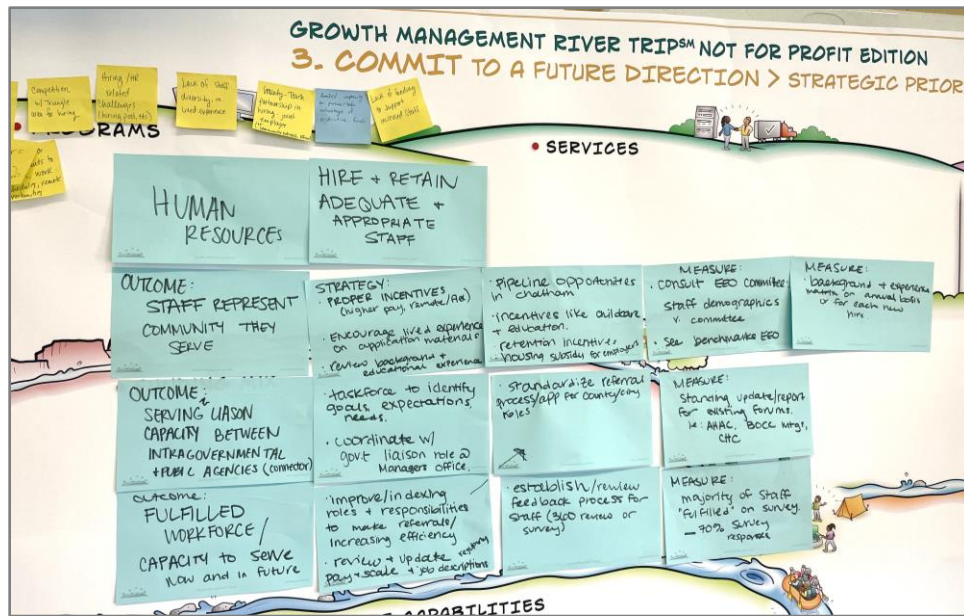 GROWTH MANAGEMENT RIVER TRIP℠ NOT FOR PROFIT EDITION
3. COMMIT TO A FUTURE DIRECTION > STRATEGIC PRIOR
Competition
w/ Triangle
area for hiring.
Hiring/HR
related
challenges
(hiring pool, etc)
Lack of Staff
diversity in
lived experience
County-Town
partnership in
hiring joint
employer
Limited capacity
to
advantage of
funds
Lack of funding
to support
increased staff
or
to
work
remote
PROGRAMS
• SERVICES
HUMAN
RESOURCES
HIRE + RETAIN
ADEQUATE +
APPROPRIATE
STAFF
OUTCOME:
STAFF REPRESENT
COMMUNITY THEY
SERVE
STRATEGY:
· PROPER INCENTIVES
(higher pay, remote/flex)
· Encourage lived experience
on application materials
· review background +
educational experience
· Pipeline opportunities
in chatham
· incentives like childcare
+ education.
· retention incentives
· housing subsidy for employees
MEASURE:
· CONSULT EEO committee:
Staff demographics
v. committee
· See benchmarks EEO
MEASURE:
· background + experience
matrix on annual basis
or for each new
hire
OUTCOME:
SERVING LIASON
CAPACITY BETWEEN
INTRAGOVERNMENTAL
+ PUBLIC AGENCIES (connector)
· taskforce to identify
goals, expectations,
needs.
· coordinate w/
govt liaison role @
Managers office.
· Standardize referral
process/app for county/city
roles
MEASURE:
Standing update/report
for existing forums.
ie: AHAC, BOCC Mtgs,
CHC
OUTCOME:
FULFILLED
WORKFORCE/
CAPACITY TO SERVE
NOW and IN FUTURE
· improve/indexing
roles + responsibilities
to make referrals/
increasing efficiency
· review + update
pay + scale + job descriptions
· establish/review
feedback process for
staff (360 review or
survey)
MEASURE:
majority of staff
"fulfilled" on survey.
— 70% survey
responses
CAPABILITIES